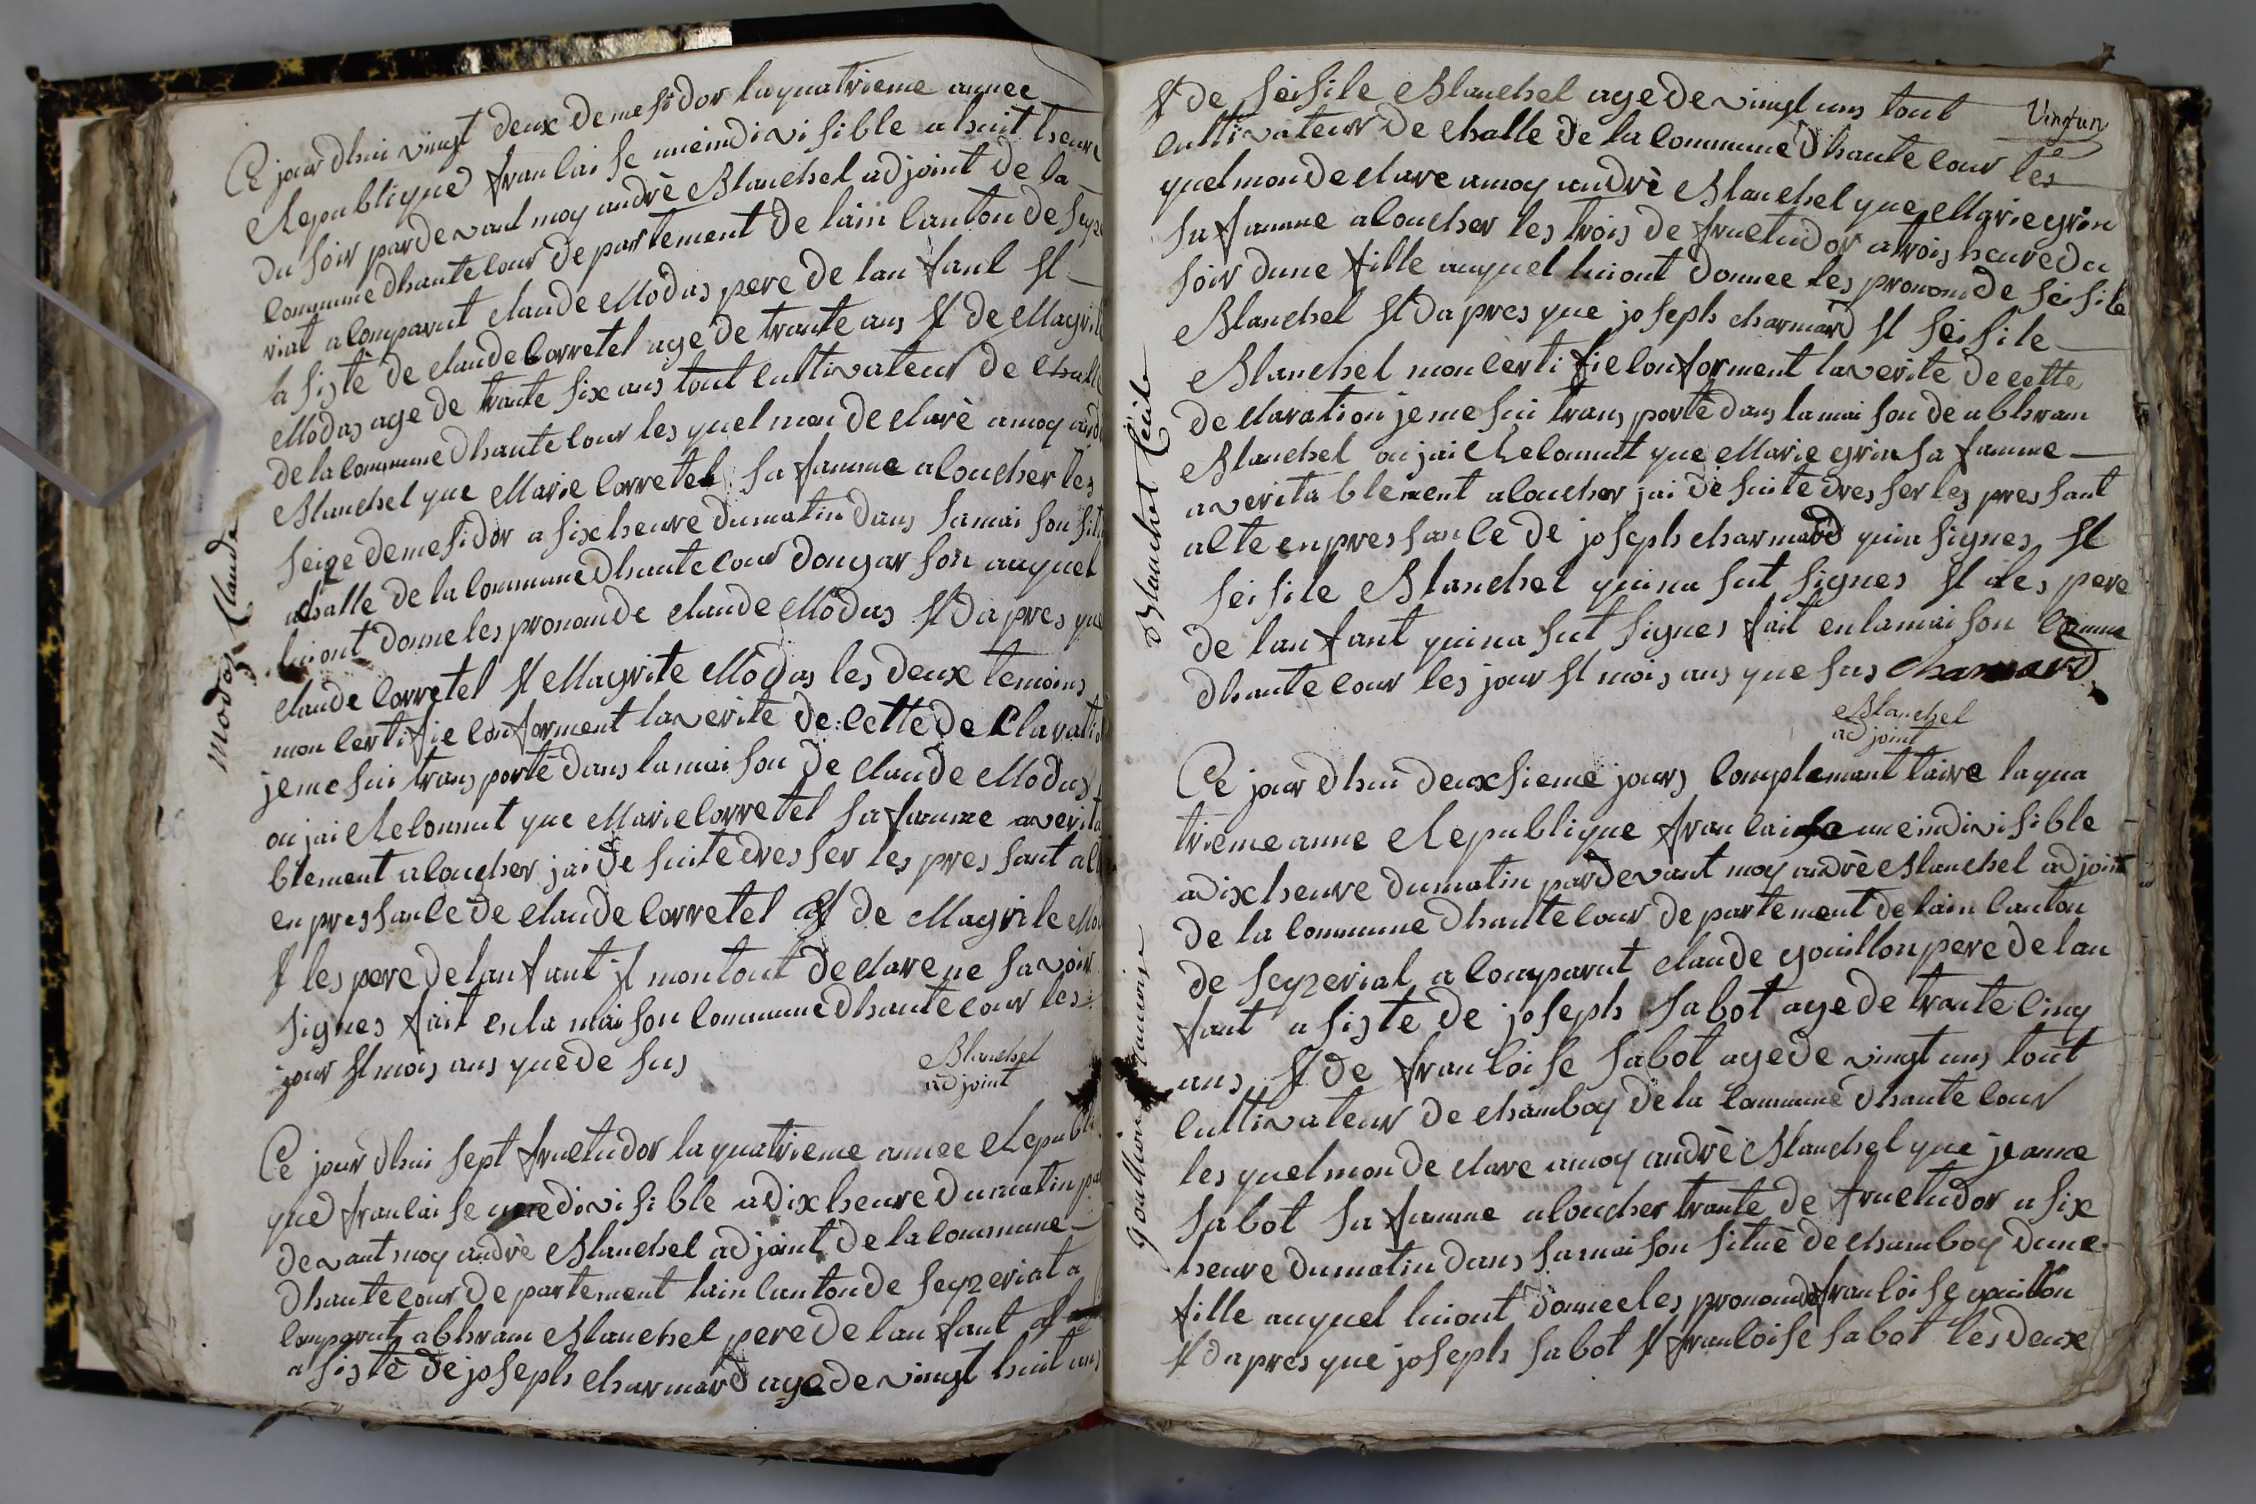 Ce jour dhui vingt deux de mesidor la quatrieme annee
Republique francaise une indivisible a huit heure
du soir pardevant moy andrè Blanchet adjoint de la
commune dhautecour departement de lain canton de
riat a comparut claude Modas pere de lan fant et
a sistè de claude Corretel age de trante ans et de
Modas age de trante six ans tout cultivateur de
de la commune dhautecour les quel mon declarè a moy
Blanchet que Marie Corretel sa famme a coucher les
seize de mesidor a six heure du matin dans sa maison
a challe de la commune dhautecour dongarson auquel
lui ont donne les pronom de claude Modas et dapres que
claude Corretel et Magrite Modas les deux temoins
mon certifie conforment la verite de cette declaratio
je me sui transportè dans la maison de claude Modas
ou jai Reconnut que Marie Corretel sa famme a verita
blement a coucher jai de suite dresser les pressant
en pressance de claude Corretel et de Magrite
et les pere de lanfant et mon tout declare ne savoir
signes fait en la maison commune dhautecour les
jour et mois ans que de sus
Blanchet
adjoint
modas Claude
Ce jour dhui sept fructudor la quatrieme annee Republi
que francaise une divisible a dix heure du matin
devant moy andrè Blanchet adjoint de la commune
dhautecour departement lain canton de seyzeriat a
comparut abhram Blanchet pere de lan fant
a sistè de joseph charmard age de vingt huit ans
Vingt un
et de seisile Blanchet age de vingt ans tout
cultivateur de challe de la commune dhautecour les
quel mon declare a moy andrè Blanchet que Marie grin
sa famme a coucher les trois de fructudor a trois heure du
soir dune fille auquel lui ont donnee les pronom de seisile
Blanchet et dapres que joseph charmard et seisile
Blanchet mon certifie conforment la verite de cette
declaration je me sui transporte dans la maison de abhram
Blanchet ou jai Reconnut que Marie grin sa famme
a veritablement a coucher jai de suite dresser les pressant
acte en pressance de joseph charmard qui a signes et
seisile Blanchet qui na sut signes et les pere
de lanfant qui na sut signes fait en la maison Comune
dhautecour les jour et mois ans que sus charmard
Blanchet
adjoint
Blanchet Cécile
Ce jour dhui deuxsieme jours complemanttaire la qua
trieme anne Republique francaise une indivisible
a dix heure du matin pardevant moy andrè Blanchet adjoint
de la commune dhautecour departement de lain canton
de seyzeriat a comparut claude gouillon pere de lan
fant a siste de joseph sabot age de trante cinq
ans et de francoise sabot age de vingt ans tout
cultivateur de chamboy de la commune dhautecour
les quel mon declare a moy andrè Blanchet que jeanne
sabot sa famme a coucher trante de fructudor a six
heure du matin dans sa maison situè de chamboy dune
fille auquel lui ont donnee les pronom de francoise gouillon
et dapres que joseph sabot et francoise sabot les deux